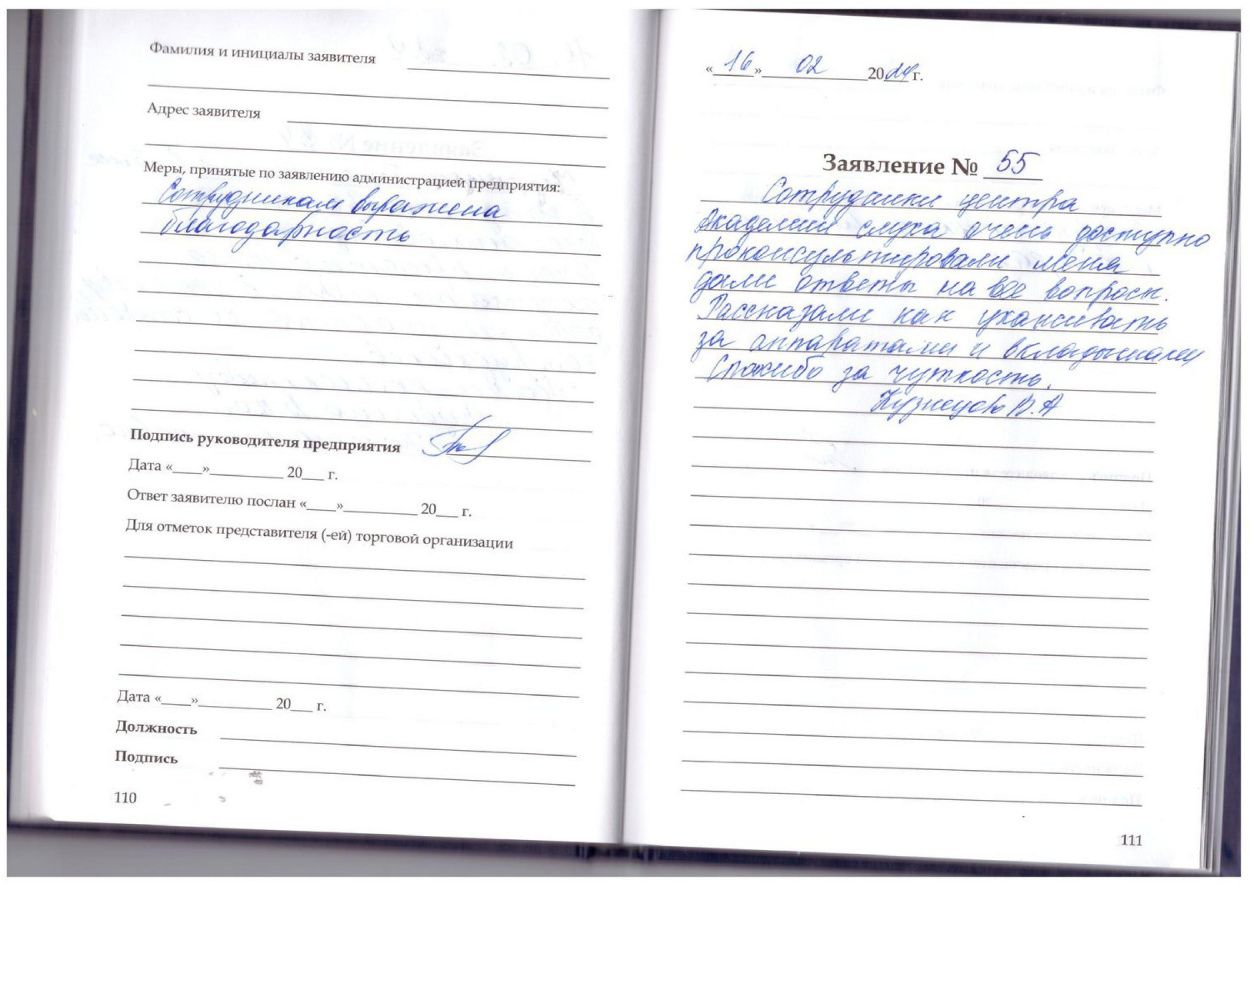 Фамилия и инициалы заявителя
Адрес заявителя
Меры, принятые по заявлению администрацией предприятия:
Сотрудникам выражена
благодарность
Подпись руководителя предприятия
Дата «____»__________ 20___ г.
Ответ заявителю послан «____»__________ 20___ г.
Для отметок представителя (-ей) торговой организации
Дата «____»__________ 20___ г.
Должность
Подпись
110
«16» 02 2020 г.
Заявление № 55
Сотрудники центра
Академии слуха очень доступно
проконсультировали меня
дали ответы на все вопросы.
Рассказали как ухаживать
за аппаратами и вкладышами,
Спасибо за чуткость.
Кузнецова В.А
111